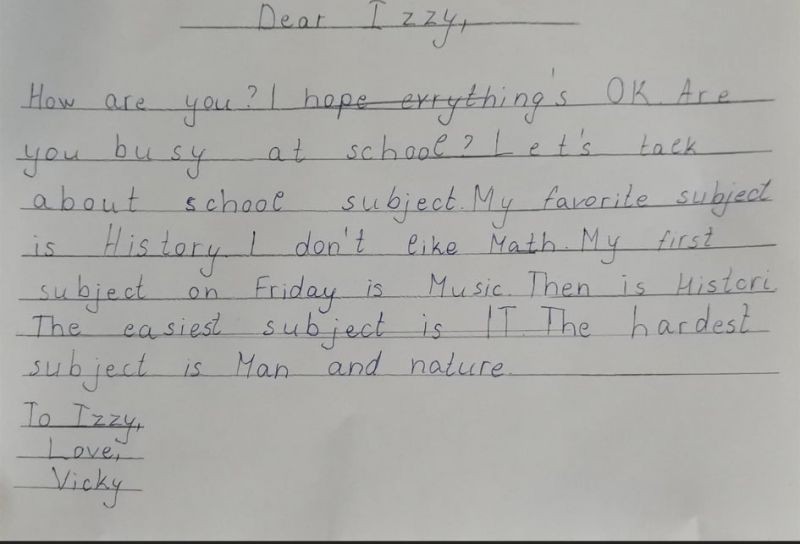 Dear Izzy,
How are you? I hope evrything's OK. Are
you busy at school? Let's talk
about school subject. My favorite subject
is History. I don't like Math. My first
subject on Friday is Music. Then is Histori
The easiest subject is IT. The hardest
subject is Man and nature.
To Izzy,
Love,
Vicky